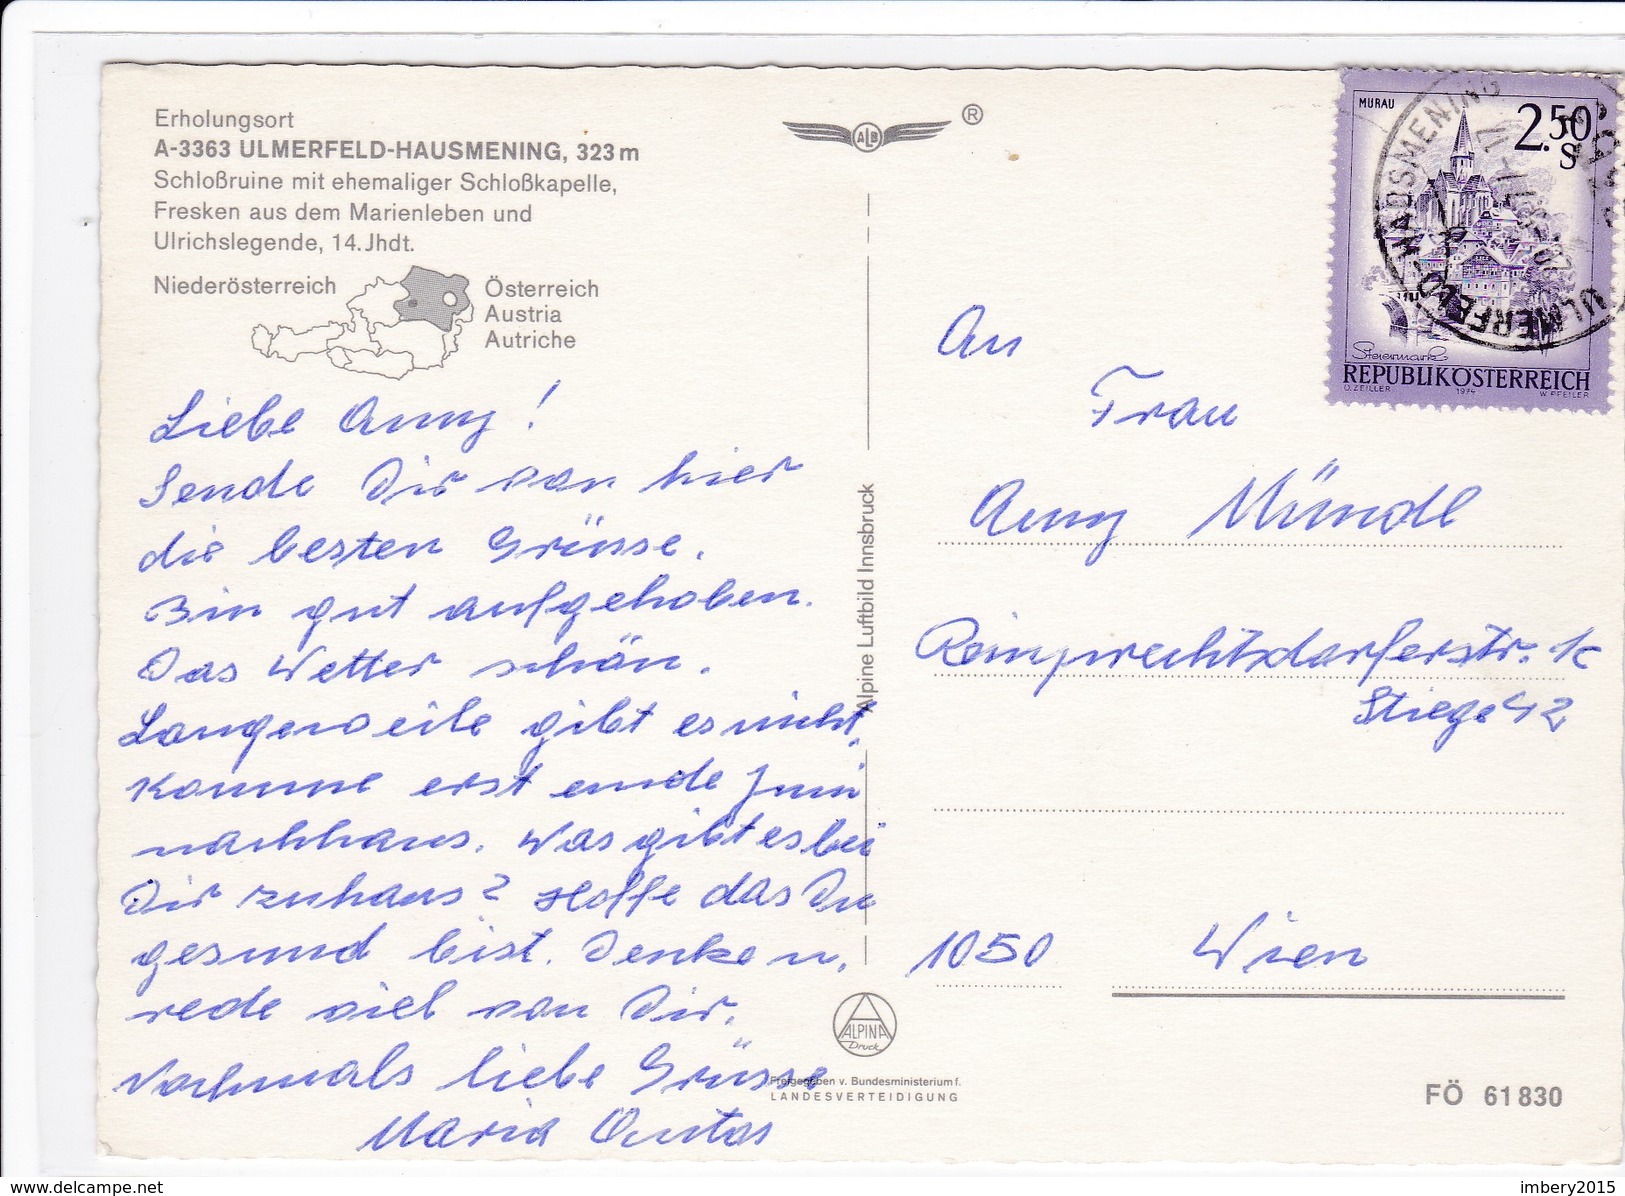 Erholungsort
A-3363 ULMERFELD-HAUSMENING, 323 m
Schloßruine mit ehemaliger Schloßkapelle,
Fresken aus dem Marienleben und
Ulrichslegende, 14. Jhdt.
Niederösterreich
Österreich
Austria
Autriche
Liebe Anny!
Sende Dir von hier
die besten Grüsse.
Bin gut aufgehoben.
Das Wetter schön.
Langeweile gibt es nicht,
komme erst ende Juni
nachhaus. Was gibt es bei
Dir zuhaus? Hoffe das Du
gesund bist. Denke u,
rede viel von Dir.
Nochmals liebe Grüsse
Maria
ALB ®
Alpine Luftbild Innsbruck
ALPINA
Druck
Freigegeben v. Bundesministerium f.
LANDESVERTEIDIGUNG
MURAU
2.50
S
Steiermark
REPUBLIK ÖSTERREICH
O. ZEILLER 1974 W. PFEILER
ULMERFELD-HAUSMENING
An
Frau
Anny Mündl
Reinprechtsdorferstr. 1c
Stiege 42
1050 Wien
FÖ 61 830
www.delcampe.net
imbery2015